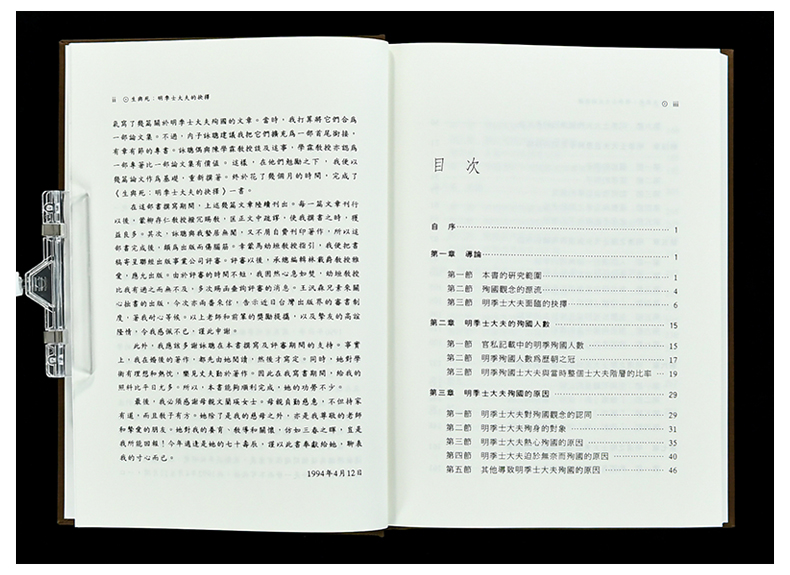 ii ⊙生與死：明季士大夫的抉擇
氣寫了幾篇關於明季士大夫殉國的文章。當時，我打算將它們合為
一部論文集。不過，內子詠聰建議我把它們擴充為一部首尾銜接、
有章有節的專書。詠聰偶與陳學霖教授談及這事，學霖教授亦認為
一部專著比一部論文集有價值。這樣，在他們勉勵之下，我便以
幾篇論文作為基礎，重新撰著。終於花了幾個月的時間，完成了
《生與死：明季士大夫的抉擇》一書。
在這部書撰寫期間，上述幾篇文章陸續刊出。每一篇文章刊行
以後，蒙柳存仁教授撥冗賜教，匡正文中疏謬，使我撰書之時，獲
益良多。其次，詠聰與我蟄居無聞，又不屑自費刊印著作，所以這
部書完成後，頗為出版而傷腦筋。幸蒙馬幼垣教授指引，我便把書
稿寄呈聯經出版事業公司評審。評審以後，承總編輯林載爵教授雅
愛，應允出版。由於評審的時間不短，我固然心急如焚，幼垣教授
比我有過之而無不及，多次賜函垂詢評審的消息。王汎森兄素來關
心拙書的出版，今次亦兩番來信，告示近日台灣出版界的審書制
度，著我耐心等候。以上老師和前輩的獎勵提攜，以及摯友的高誼
隆情，令我感佩不已，謹此申謝。
此外，我應該多謝詠聰在本書撰寫及評審期間的支持。事實
上，我在婚後的著作，都先由她閱讀，然後才寫定。同時，她對學
術有理想和熱忱，樂見丈夫勤於著作。因此在我寫書期間，給我的
照料比平日尤多。所以，本書能夠順利完成，她的功勞不少。
最後，我必須感謝母親文蘭瑛女士。母親貞勤慈惠，不但持家
有道，而且教子有方。她除了是我的慈母之外，亦是我尊敬的老師
和摯愛的朋友。她對我的養育、教導和關懷，仿如三春之暉，豈是
我所能回報！今年適逢是她的七十壽辰，謹以此書奉獻給她，聊表
我的寸心而已。
1994年4月12日
⊙ iii
目 次
自 序……1
第一章 導論……1
第一節 本書的研究範圍……1
第二節 殉國觀念的源流……4
第三節 明季士大夫面臨的抉擇……6
第二章 明季士大夫的殉國人數……15
第一節 官私記載中的明季殉國人數……15
第二節 明季殉國人數爲歷朝之冠……17
第三節 明季殉國士大夫與當時整個士大夫階層的比率……19
第三章 明季士大夫殉國的原因……29
第一節 明季士大夫對殉國觀念的認同……29
第二節 明季士大夫殉身的對象……31
第三節 明季士大夫熱心殉國的原因……35
第四節 明季士大夫迫於無奈而殉國的原因……40
第五節 其他導致明季士大夫殉國的原因……46